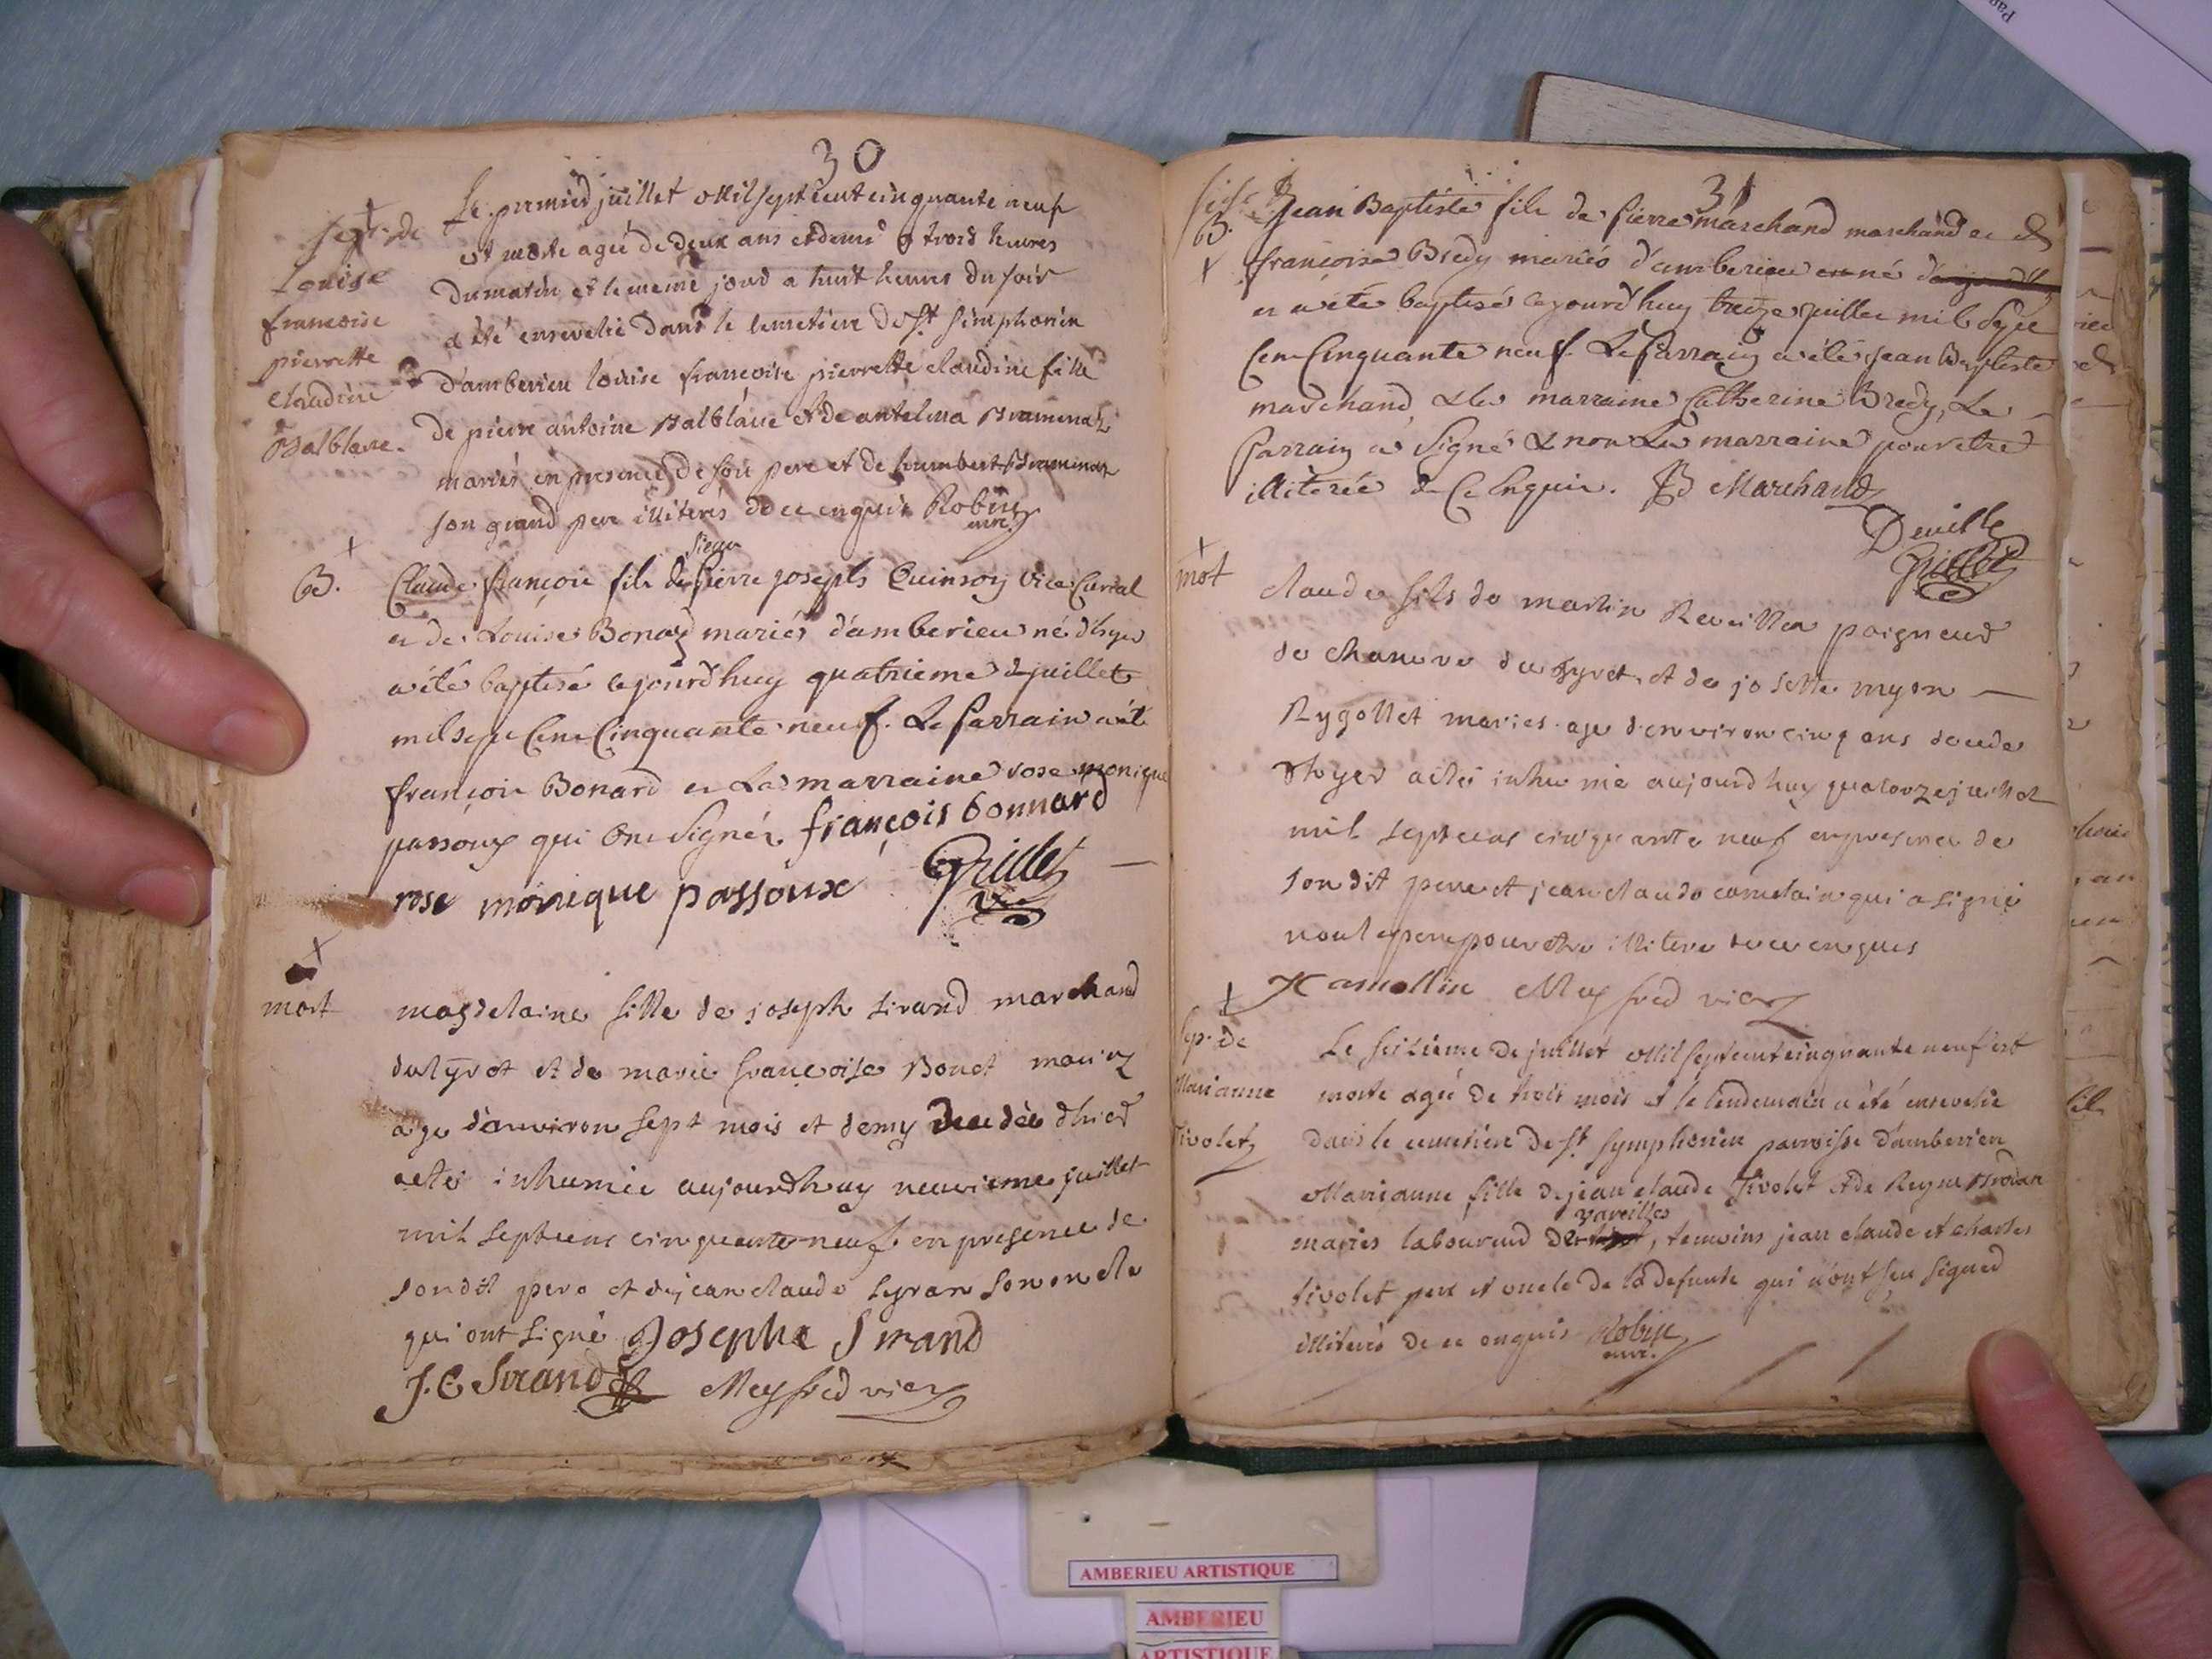 30
Sep. de
Louise
francoise
pierrette
claudine
Balblane.
Le premier juillet Mil sept cent cinquante neuf
est morte agée de deux ans et demi a trois heures
du matin et le meme jour a huit heures du soir
a été ensevelie dans le cimetiere de St Simphorien
d'amberieu louise francoise pierrette claudine fille
de pierre antoine Balblane et de antelma
mariés en presence de son pere et de humbert
son grand pere illiterés de ce enquis Robin
curé
B.
sieur
Claude françois fils de pierre joseph Quinson Vice
et de Louise Bonard mariés d'amberieu né d'hyer
a été baptisé cejourd'huy quatrieme de juillet
mil sept Cent Cinquante neuf. Le Parrain a été
françois Bonard et La marraine rose monique
passoux qui Ont Signéz. françois bonnard
rose monique passoux Grillet
mort
magdelaine fille de joseph sirand marchand
du tyret et de marie françoise Bonet mariez
age d'anviron sept mois et demy decedée d'hier
a eté inhumée aujourd'huy neuvieme juillet
mil sept cent cinquante neuf en presence de
son dit pere et de jean claude syran son oncle
qui ont signé Josephe Sirand
J. C Sirand Meyfred vic
31
B.
Jean Baptiste fils de Pierre marchand marchand et de
françoise Bredy mariés d'amberieu né
et a été baptisé cejourd'huy treize juillet mil Sept
Cent Cinquante neuf. Le Parrain a été Jean Baptiste
marchand & la marraine Catherine Bredy, Le
Parrain a Signé & non La marraine pour etre
illiterée de Ce Enquise. JB Marchand
Deville
Grillet
mort
claude fils de martin Reveillon paigneur
de chanvre du tyret et de josette myon
Rygollet maries age d'environ cinq ans decede
d'hyer a eté inhumé aujourd'huy quatorze juillet
mil sept cens cinquante neuf en presence de
son dit pere et jean claude camelin qui a signé
non le pere pour etre illitere de ce enquis
Camellin Meyfred vic
Sep. de
Marianne
Tivolet
Le seizieme de juillet Mil sept cent cinquante neuf est
morte agée de trois mois et le lendemain a été ensevelie
dans le cimetiere de St Symphorien parroisse d'amberieu
Marianne fille de jean claude Tivolet et de Reyne
vareilles
mariés laboureur de, temoins jean claude et charles
tivolet pere et oncle de la defunte qui n'ont sçu signer
illiterés de ce enquis Robin
curé.
AMBERIEU ARTISTIQUE
AMBERIEU
ARTISTIQUE